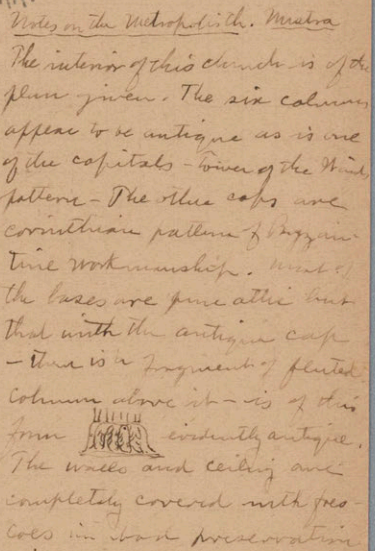 Notes on the Metropolis th. Mistra
The interior of this church is of the
plan given. The six columns
appear to be antique as is one
of the capitals - Tower of the Winds
pattern - The other caps are
corinthian pattern of Byzan-
tine workmanship. Most of
the bases are pure attic but
that with the antique cap
- there is a fragment of fluted
column above it - is of this
form evidently antique.
The walls and ceiling are
completely covered with fres-
coes in bad preservation